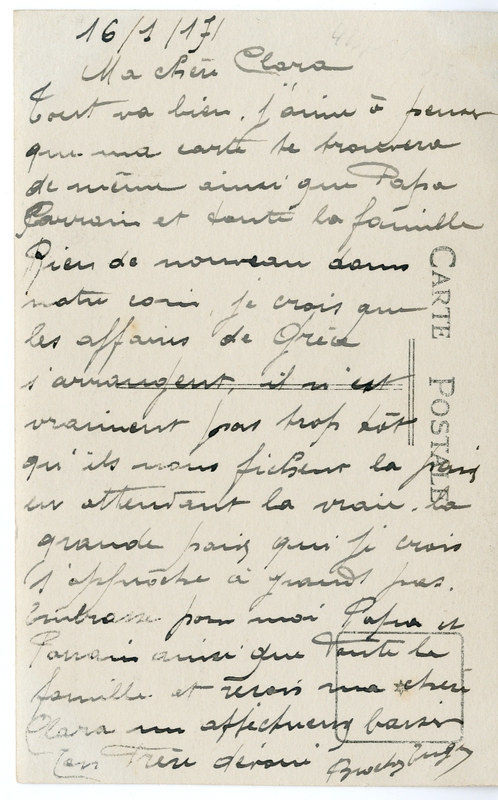 16/1/17
Ma chère Clara
Tout va bien. j'aime à penser
que ma carte te trouvera
de même ainsi que Papa
Parrain et toute la famille
Rien de nouveau dans
notre coin, je crois que
les affaires de Grèce
s'arrangent, il n'est
vraiment pas trop tôt
qu'ils nous fichent la paix
en attendant la vraie. la
grande paix qui je crois
s'approche à grands pas.
Embrasse pour moi Papa et
Parrain ainsi que toute la
famille et reçois ma chère
Clara un affectueux baiser
Ton frère dévoué
CARTE POSTALE